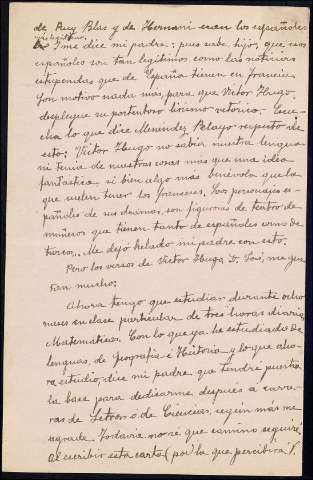 de Ruy Blas y de Hernani eran los españoles
legítimos
I me dice mi padre: pues sabe, hijo, que esos
españoles son tan legítimos como las noticias
estupendas que de España tienen en francia.
Son motivo nada más, para que Victor Hugo
despliegue su portentoso lirismo retórico. Escu-
cha lo que dice Menendez Pelayo respecto de
esto: Victor Hugo no sabía nuestra lengua
ni tenia de nuestras cosas más que una idea
fantastica si bien algo más benévola que la
que suelen tener los franceses. Los personajes es-
pañoles de sus dramas, son figurones de teatro de
muñecos que tienen tanto de españoles como de
turcos... Me dejó helado mi padre con esto.
Pero los versos de Victor Hugo D. José, me gus-
tan mucho.
Ahora tengo que estudiar durante ocho
meses en clase particular de tres horas diarias
Matemáticas. Con lo que ya he estudiado de
lenguas, de Geografia é Historia y lo que aho-
ra estudio, dice mi padre que tendré puesta
la base para dedicarme después a carre-
ras de Letras o de Ciencias, según más me
agrade. Todavia no sé que camino seguiré
Al escribir esta carta (por) la que percibirá V.